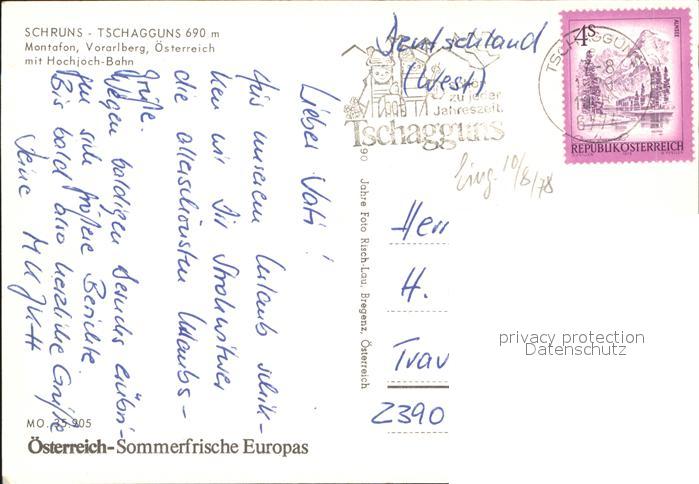 SCHRUNS - TSCHAGGUNS 690 m
Montafon, Vorarlberg, Österreich
mit Hochjoch-Bahn
Lieber Vati!
Aus unserem Urlaub schik-
ken wir Dir Strohwitwer
die allerschönsten Urlaubs-
grüße.
Wegen baldigen Besuchs erübri-
gen sich größere Berichte.
Bis bald also herzliche Grüße
Deine M U J U H
MO. 35 905
Österreich-Sommerfrische Europas
90 Jahre Foto Risch-Lau, Bregenz, Österreich
Deutschland
(West)
zu jeder
Jahreszeit
Tschagguns
TSCHAGGUNS
6774
4S
ALMSEE
REPUBLIK ÖSTERREICH
Eing. 10/8/78
Herr
H.
Trav
2390
privacy protection
Datenschutz